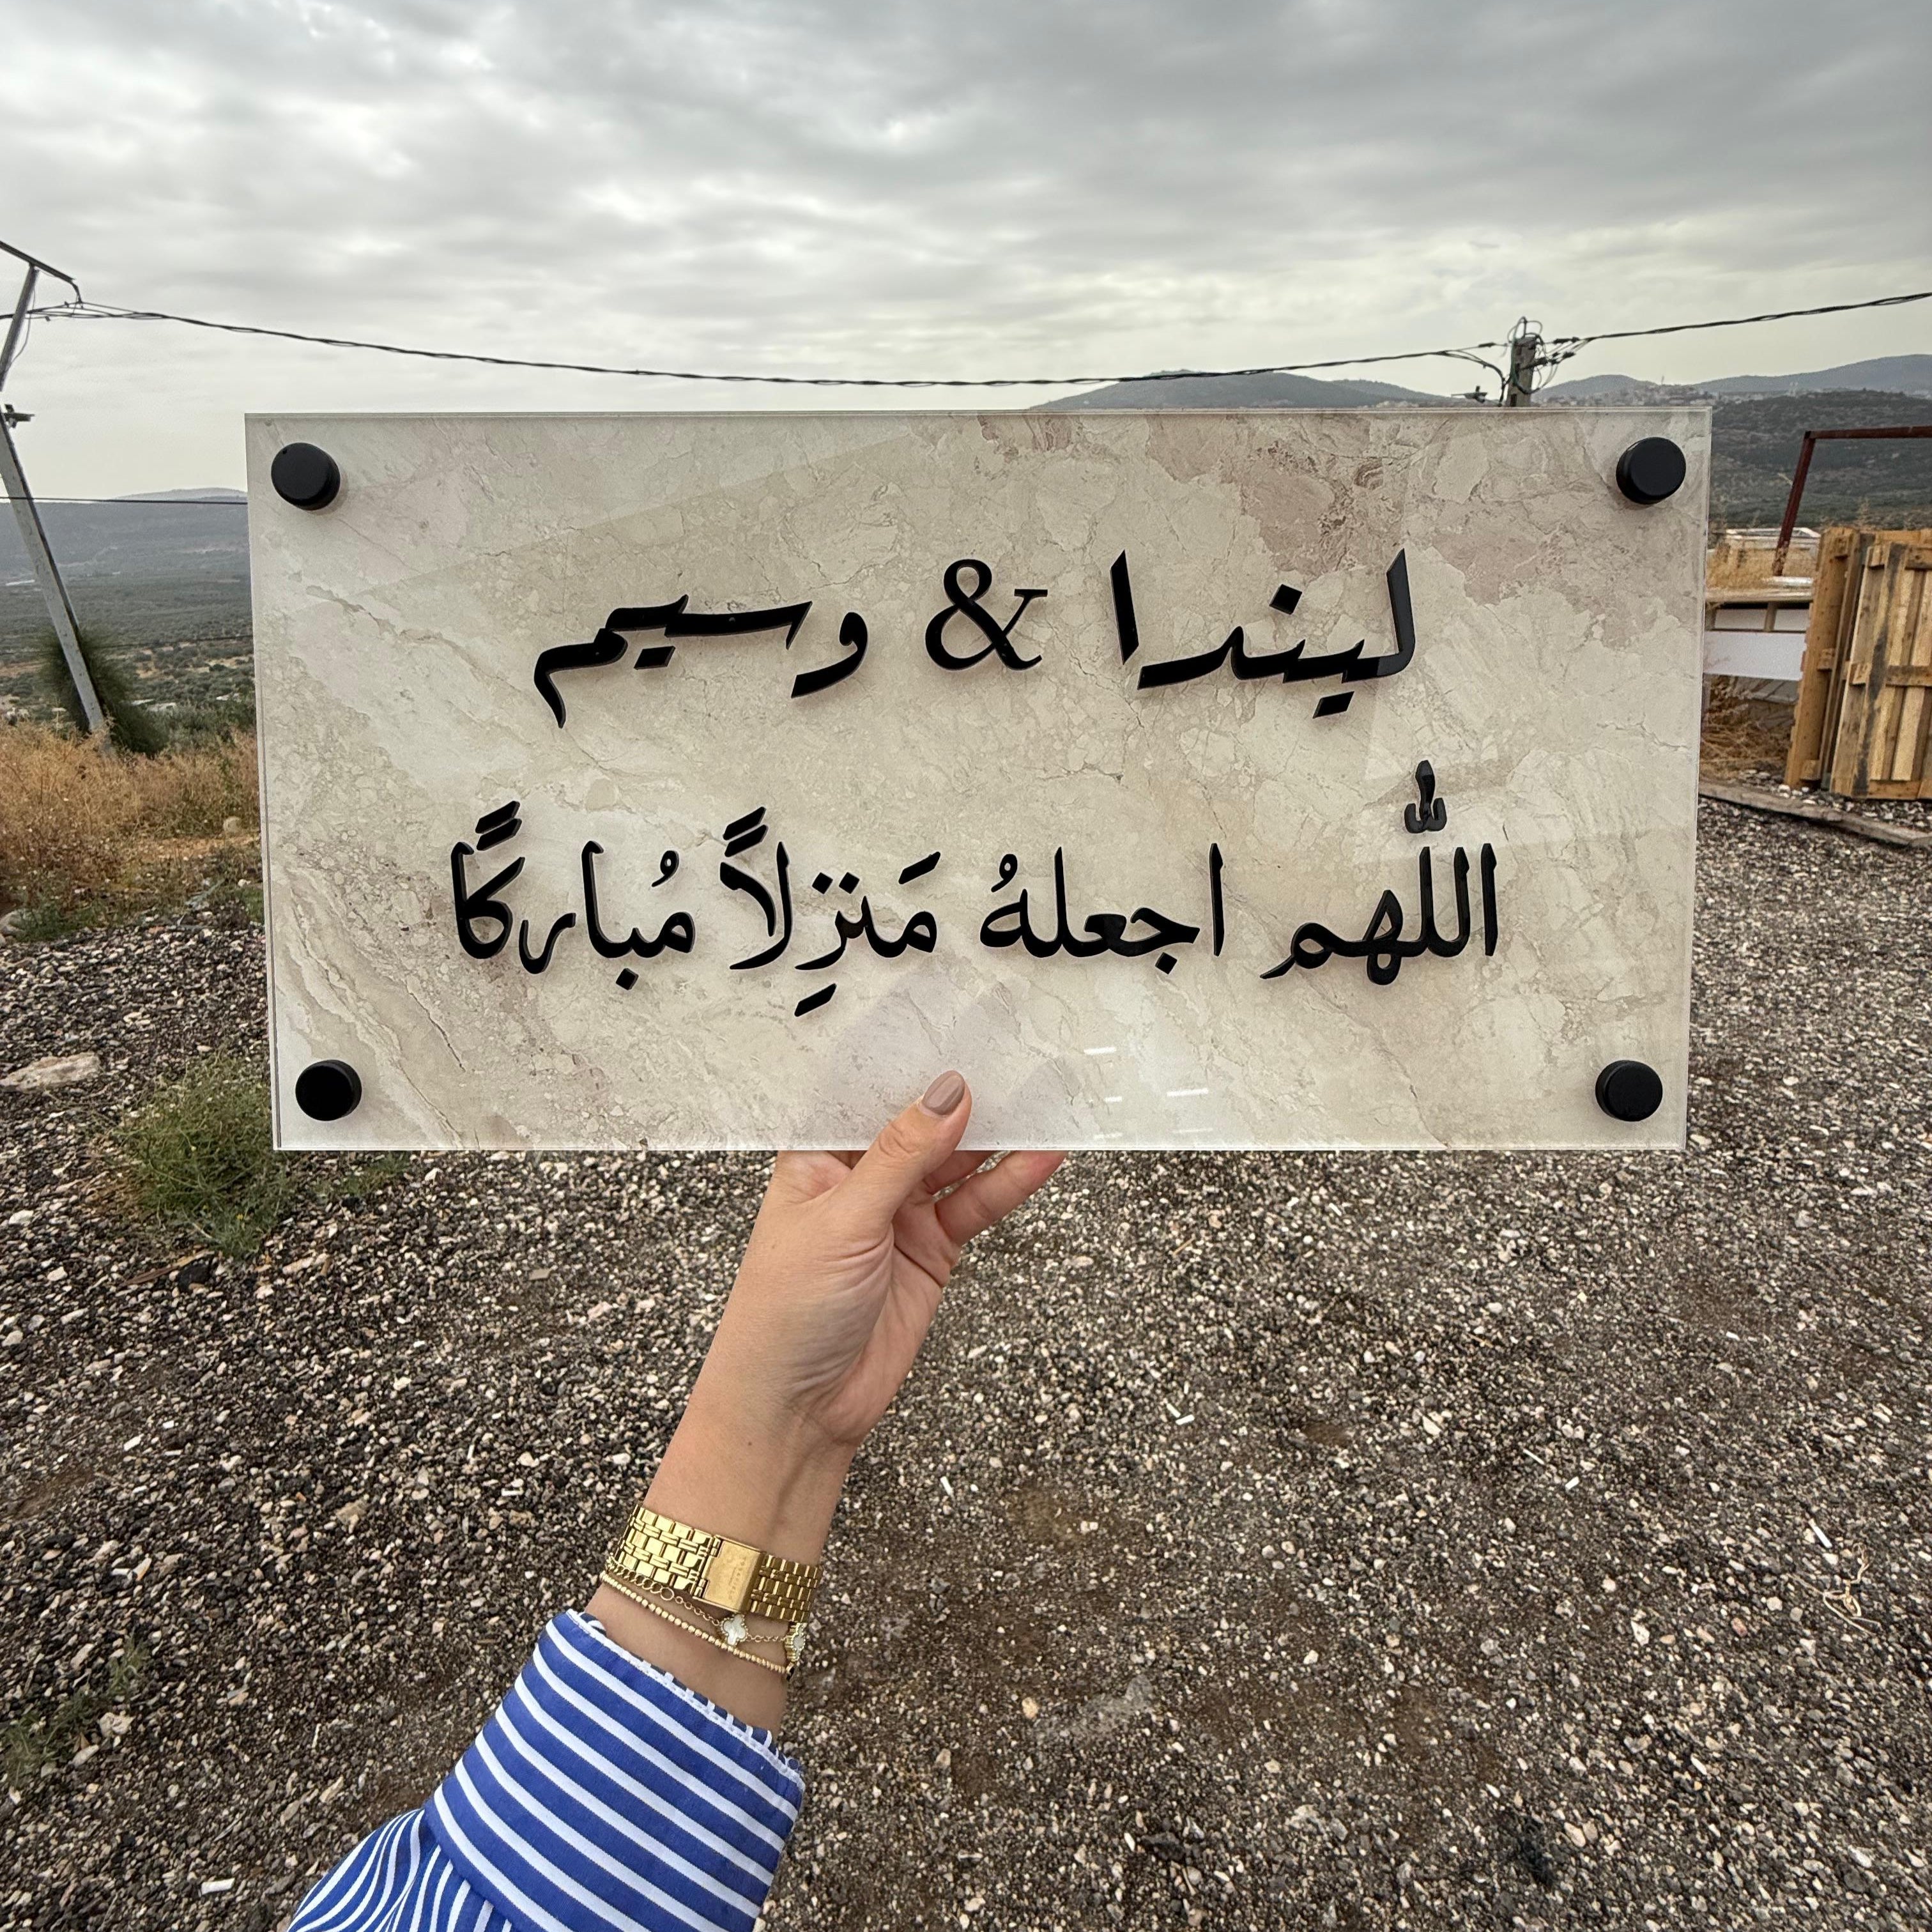 ليندا & وسيم
اللّٰهم اجعلهُ مَنزِلاً مُباركًا